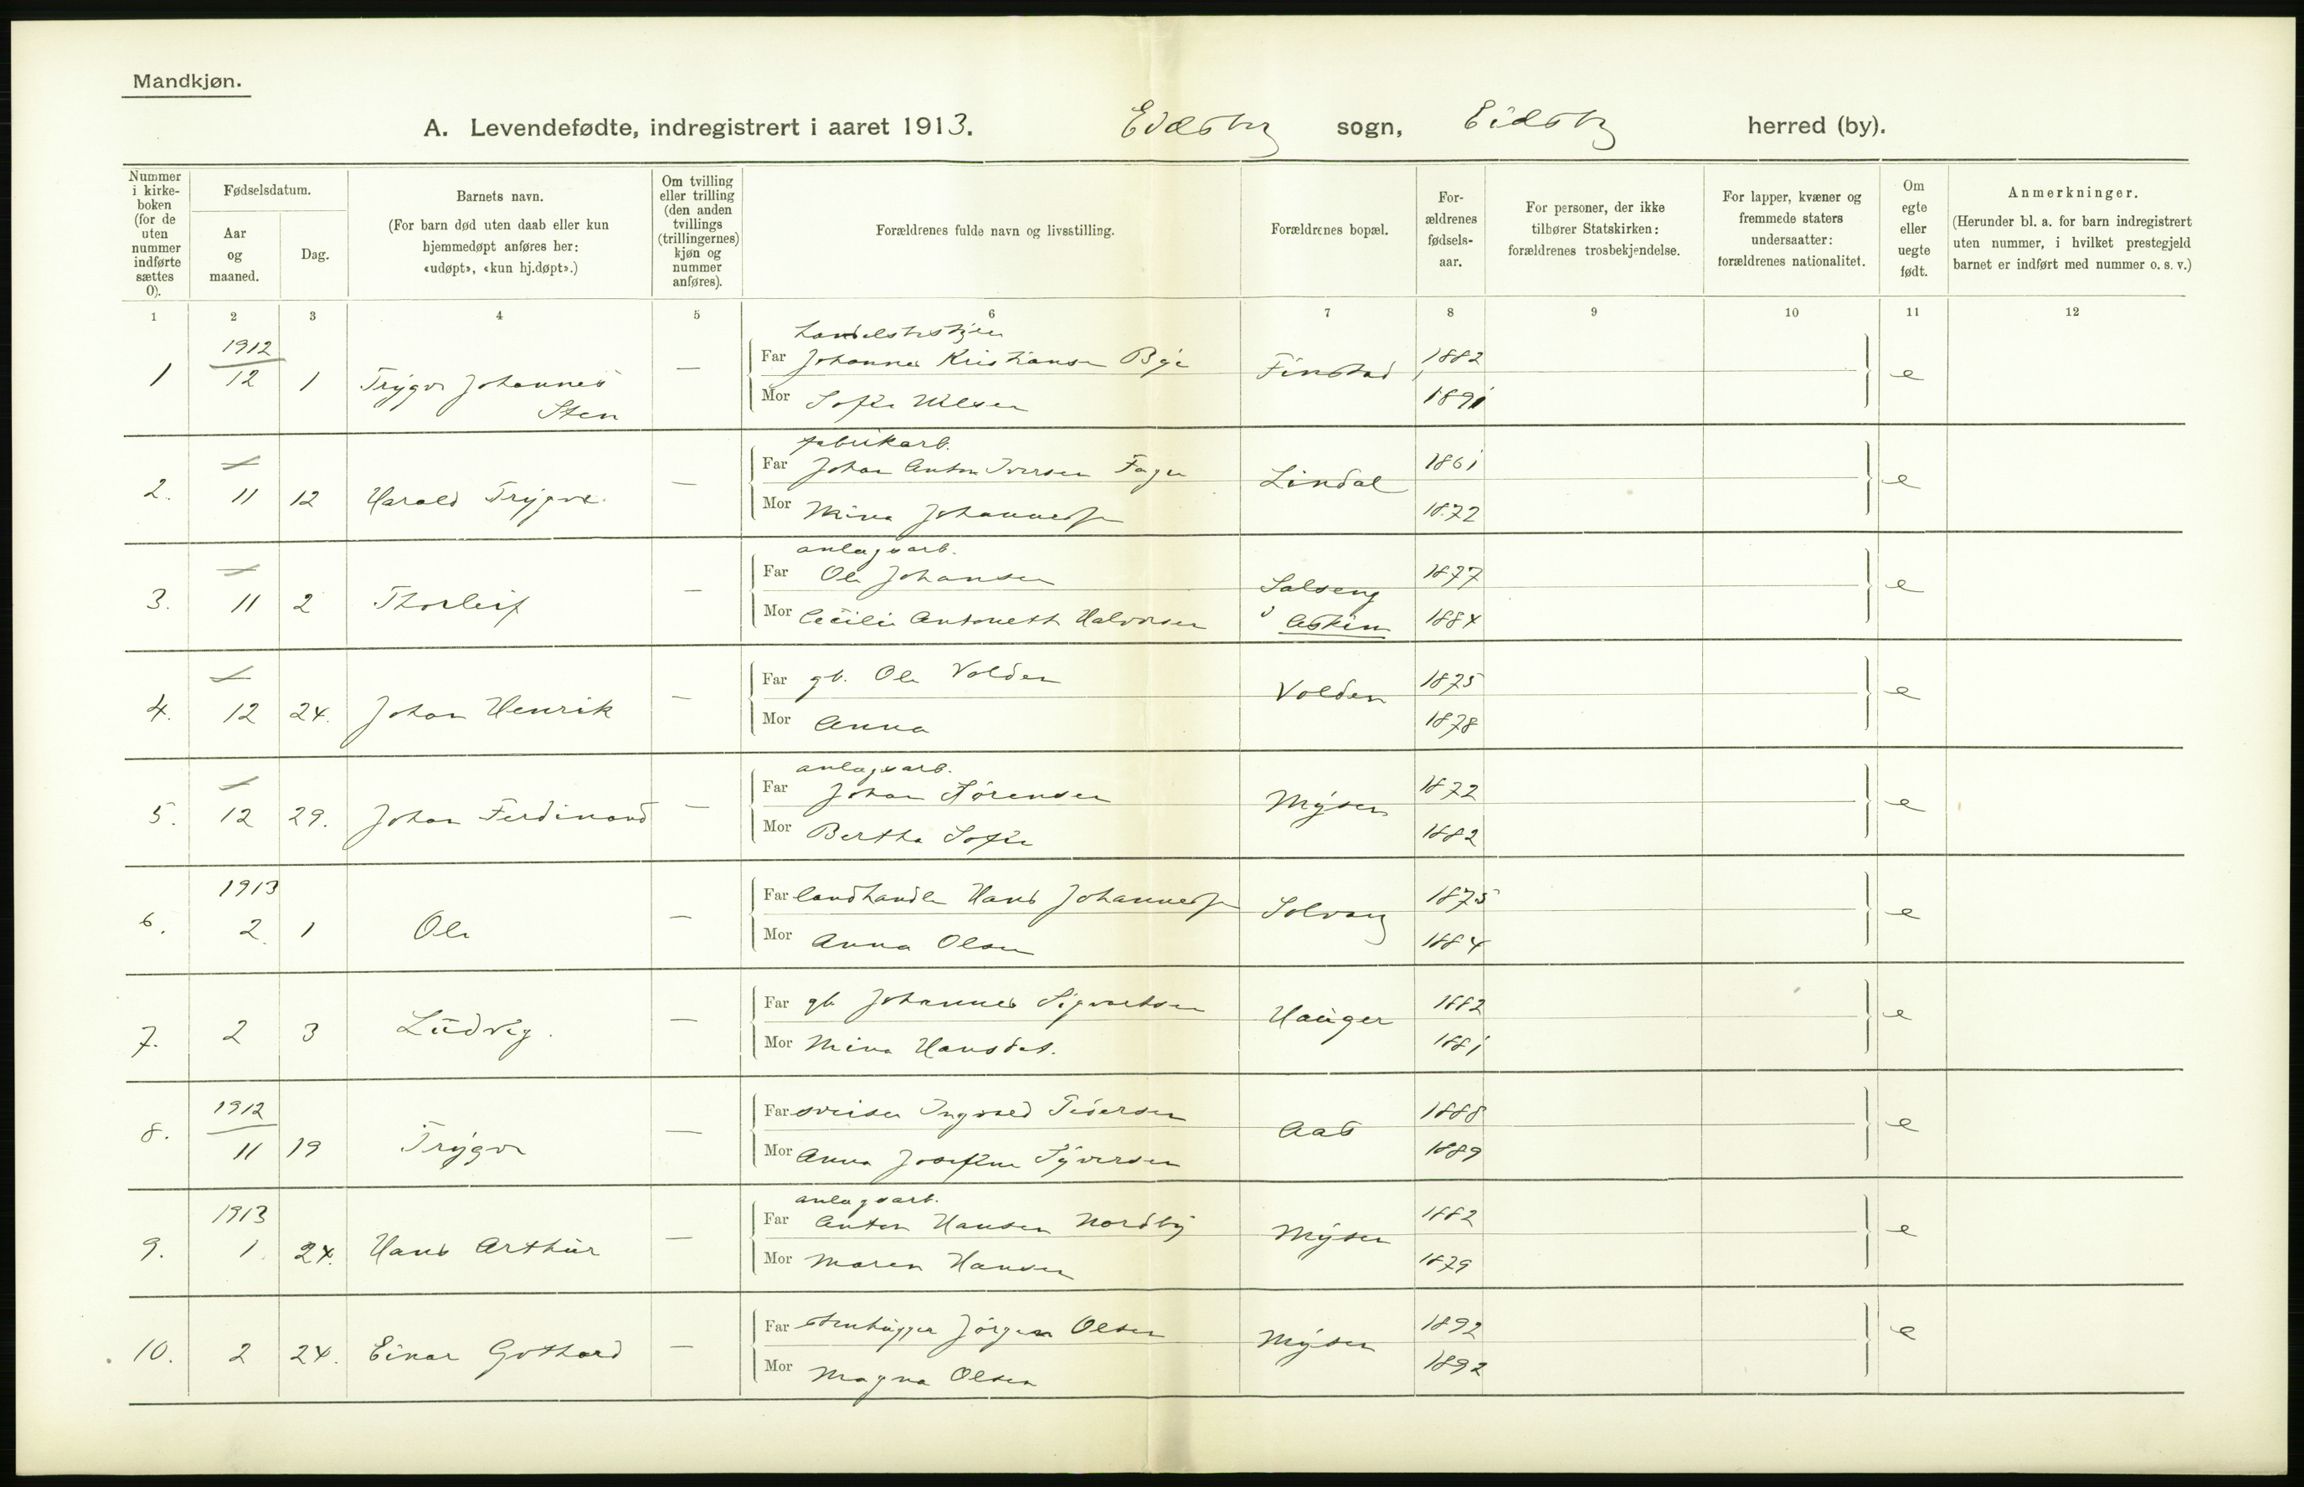 Mandkjøn.
A. Levendefødte, indregistrert i aaret 1913. Eidsberg sogn, Eidsberg herred (by).
Nummer i kirke-boken (for de uten nummer indførte sættes 0).
Fødselsdatum.
Aar og maaned.
Dag.
Barnets navn.
(For barn død uten daab eller kun hjemmedøpt anføres her: «udøpt», «kun hj.døpt».)
Om tvilling eller trilling (den anden tvillings (trillingernes) kjøn og nummer anføres).
Forældrenes fulde navn og livsstilling.
Forældrenes bopæl.
For-ældrenes fødsels-aar.
For personer, der ikke tilhører Statskirken: forældrenes trosbekjendelse.
For lapper, kvæner og fremmede staters undersaatter: forældrenes nationalitet.
Om egte eller uegte født.
Anmerkninger.
(Herunder bl. a. for barn indregistrert uten nummer, i hvilket prestegjeld barnet er indført med nummer o. s. v.)
1 2 3 4 5 6 7 8 9 10 11 12
1912 handelsbestyrer
1 12 1 Trygve Johannes Sten — Far Johannes Kristiansen Bye Finstad 1882 e
Mor Sofie Nilsen 1891
fabrikarb.
2. 11 12 Harald Trygve. — Far Johan Anton Iversen Lindal 1861 e
Mor Mina Johannesen 1872
anlegsarb.
3. 11 2 Thorleif — Far Ole Johansen Solseng i Askim 1877 e
Mor Cecilie Antonette Halvorsen 1884
4. 12 24. Johan Henrik — Far gb. Ole Volden Volden 1875 e
Mor Anna 1878
anlagsarb.
5. 12 29. Johan Ferdinand — Far Johan Sørensen Mysen 1872 e
Mor Bertha Sofie 1882
1913
6. 2. 1 Ole — Far landhandler Hans Johannesen Solvang 1875 e
Mor Anna Olsen 1884
7. 2 3 Ludvig. — Far gb. Johannes Sigvartsen Hauger 1882 e
Mor Mina Hansdat. 1881
1912
8. 11 19 Trygve — Far sveiser Ingvald Pedersen Aas 1888 e
Mor Anna Josefine Syversen 1889
1913 anlagsarb.
9. 1. 24. Hans Arthur — Far Anton Hansen Nordby Mysen 1882 e
Mor Maren Hansen 1879
10. 2 24. Einar Gothard — Far stenhugger Jørgen Olsen Mysen 1892 e
Mor Magna Olsen 1892